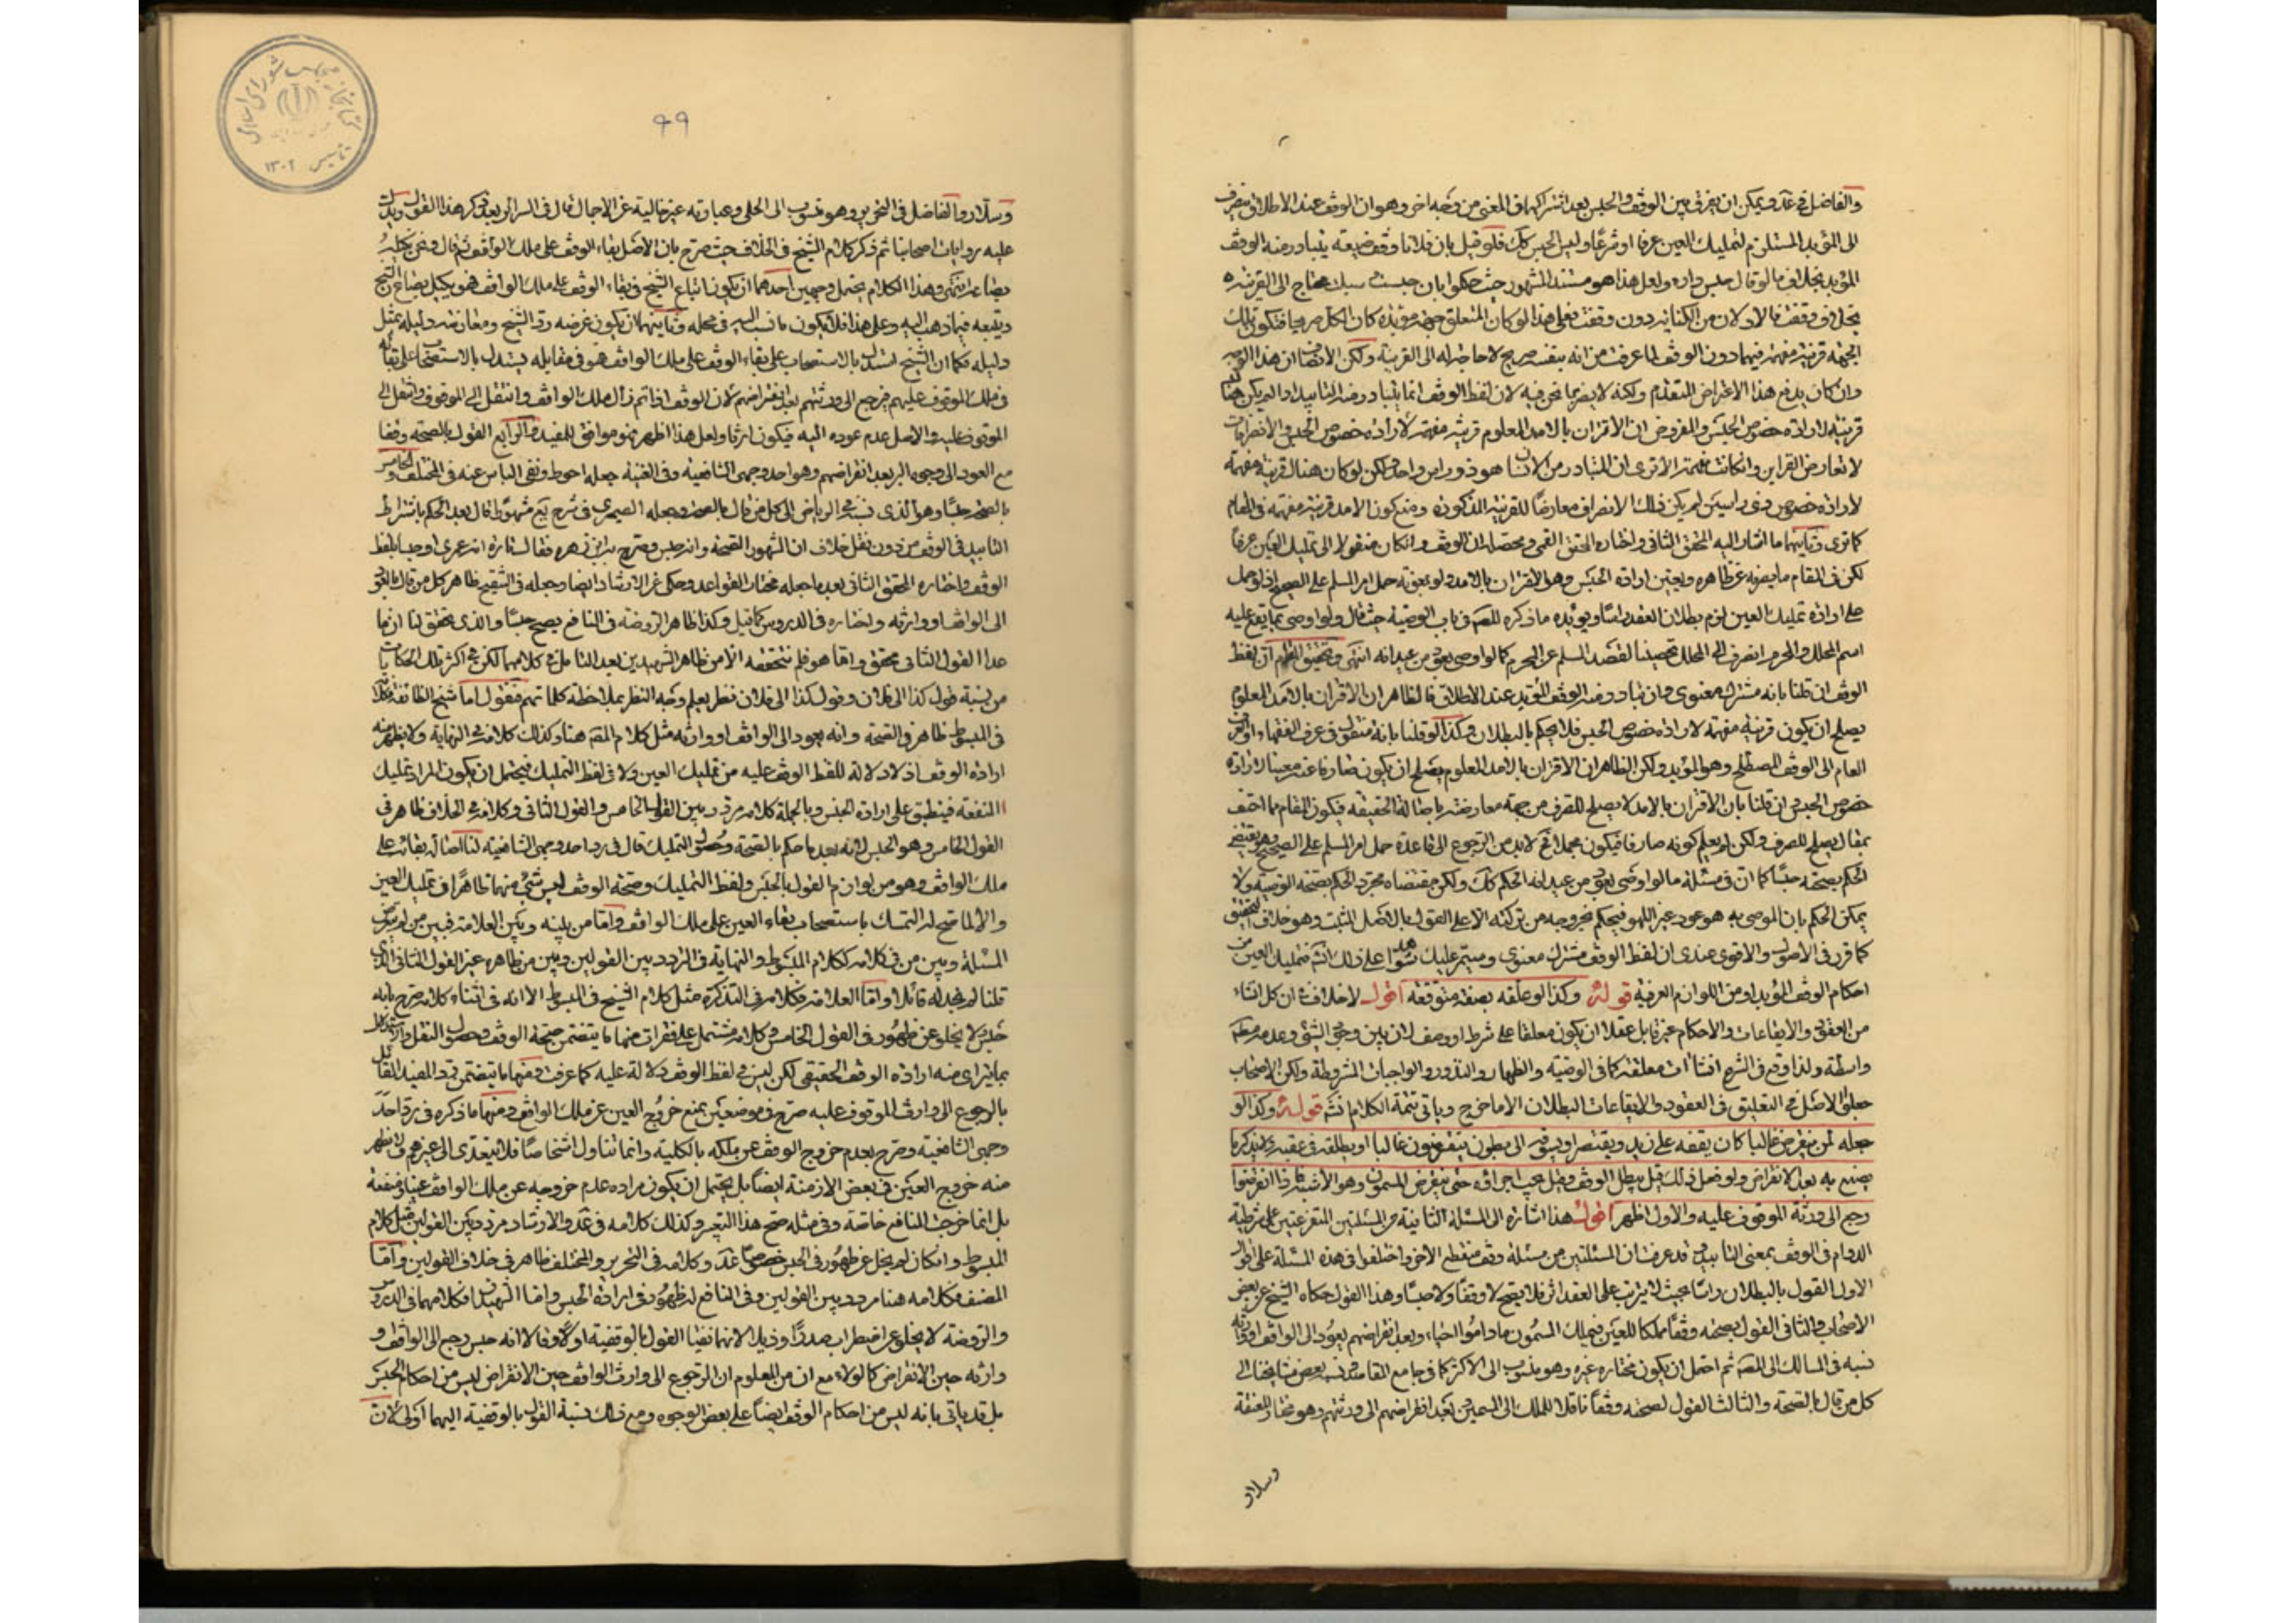 والفاضل في عد ويمكن ان يفرق بين الوقف والحبس بعد اشتراكهما في المعنى من وجه اخر وهو ان الوقف عند الاطلاق ينصرف
الى المؤبد المستلزم لتمليك العين عرفا او شرعا وليس الحبس كك فلو قيل بان فلانا وقف ضيعته يتبادر منه الوقف
المؤبد بخلاف ما لو قال حبس داره ولعل هذا هو مستند المشهور حيث حكموا بان حبست وسبلت يحتاج الى القرينة
بخلاف وقفت فالاولان من الكناية دون وقفت فعلى هذا لو كان المتعلق جهة مؤبدة كان الكل صريحا فتكون تلك
الجهة قرينة مفهمة فيهما دون الوقف لما عرفت من انه بنفسه صريح لا حاجة له الى القرينة ولكن الانصاف ان هذا الوجه
وان كان يدفع هذا الاعتراض المتقدم ولكنه لا يضر بما نحن فيه لان لفظ الوقف انما يتبادر منه التابيد اذا لم يكن هناك
قرينة لارادة خصوص الحبس والمفروض ان الاقتران بالامد المعلوم قرينة مفهمة لارادة خصوص الحبس والانصرافات
لا تعارض القراين وان كانت مفهمة الا ترى ان المتبادر من الانسان هو ذو راس واحد ولكن لو كان هناك قرينة مفهمة
لارادة خصوص ذي راسين لم يكن ذلك الانصراف معارضا للقرينة المذكورة ومنع كون الامد قرينة مفهمة في المقام
كما ترى وثانيهما ما اشار اليه المحقق الثاني واختاره المحقق القمي ومحصله ان الوقف وان كان منقولا الى تمليك العين عرفا
لكن في المقام ما يصرفه عن ظاهره ويعين ارادة الحبس وهو الاقتران بالامد ولو بمعونة حمل امر المسلم على الصحيح اذ لو حمل
على ارادة تمليك العين لزم بطلان العقد راسا ويؤيده ما ذكره المصنف في باب الوصية حيث قال ولو اوصى بما يقع عليه
اسم المحلل والمحرم انصرف الى المحلل تحصينا لقصد المسلم عن المحرم كما لو اوصى بعود من عيدانه انتهى وتحقيق المقام ان لفظ
الوقف ان قلنا بانه مشترك معنوي وان تبادر منه الوقف المؤبد عند الاطلاق فالظاهر ان الاقتران بالامد المعلوم
يصلح ان يكون قرينة مفهمة لارادة خصوص الحبس فلا يحكم بالبطلان وكذا لو قلنا بانه منقول في عرف الفقهاء او العرف
العام الى الوقف المصطلح وهو المؤبد ولكن الظاهر ان الاقتران بالامد المعلوم يصلح ان يكون صارفا عنه معينا لارادة
خصوص الحبس وان قلنا بان الاقتران بالامد لا يصلح للصرف من جهة معارضته باصالة الحقيقة فيكون المقام مما احتف
بمقال يصلح للصرف ولكن لم يعلم كونه صارفا فيكون مجملا فح لا بد من الرجوع الى قاعدة حمل امر المسلم على الصحيح وهو يقتضي
الحكم بصحته حبسا كما ان في مسئلة ما لو اوصى بعود من عيدانه الحكم كك ولكن مقتضاه مجرد الحكم بصحة الوصية ولا
يمكن الحكم بان الموصى به هو عود غير اللهو فيحكم بخروجه من تركته الا على القول بالاصل المثبت وهو خلاف التحقيق
كما قرر في الاصول والاقوى عندي ان لفظ الوقف مشترك معنوي وسيمر عليك شواهد على ذلك انش فتمليك العين من
احكام الوقف المؤبد او من اللوازم العرفية قوله وكذا لو علقه بصفة متوقعة اقول لا خلاف في ان كل انشاء
من العقود والايقاعات والاحكام غير قابل عقلا ان يكون معلقا على شرط او وصف لان بين وجود الشئ وعدمه
واسطة ولذا وقع في الشرع انشاآت معلقة كما في الوصية والظهار والنذور والواجبات المشروطة ولكن الاصحاب
جعلوا الاصل في التعليق في العقود والايقاعات البطلان الا ما خرج وياتي تتمة الكلام انش قوله وكذا لو
جعله لمن ينقرض غالبا كان يقفه على زيد ويقتصر او يسوقه الى بطون ينقرضون غالبا او يطلقه في عقبه ولا يذكر ما
يصنع به بعد الانقراض ولو فعل ذلك قيل يبطل الوقف وقيل يجب اجراؤه حتى ينقرض المسمون وهو الاشبه فاذا انقرضوا
رجع الى ورثة الموقوف عليه والاول اظهر اقول هذا اشارة الى المسئلة الثانية من المسئلتين المتفرعتين على شرطية
الدوام في الوقف بمعنى التابيد وقد عرفت ان المسئلتين من مسئلة وقف منقطع الاخر واختلفوا في هذه المسئلة على اقوال
الاول القول بالبطلان راسا بحيث لا يترتب على العقد اثر فلا يصح لا وقفا ولا حبسا وهذا القول حكاه الشيخ عن بعض
الاصحاب والثاني القول بصحته وقفا مملكا للعين فيملك المسمون ما داموا احياء وبعد انقراضهم يعود الى الواقف او ورثته
نسبه في المسالك الى المصنف ثم احتمل ان يكون مختاره غيره وهو منسوب الى الاكثر كما في جامع المقاصد ونسبه بعض مشايخنا الى
كل من قال بالصحة والثالث القول لصحته وقفا ناقلا للملك الى المسمين وبعد انقراضهم الى ورثتهم وهو مختار المقنعة
وسلار
٩٩
وسلار والفاضل في التحرير وهو منسوب الى الحلي وعبارته غير خالية عن الاجمال قال في السرائر بعد ذكر هذا القول ويدل
عليه روايات اصحابنا ثم ذكر كلام الشيخ في الخلاف حيث صرح بان الاصل بقاء الوقف على ملك الواقف ثم قال ونحن نكيله
بصاعه انتهى وهذا الكلام يحتمل وجهين احدهما ان يكون اتباع الشيخ في بقاء الوقف على ملك الواقف فهو يكيل بصاع الشيخ
ويتبعه فيما ذهب اليه وعلى هذا فلا يكون ما نسب اليه في محله وثانيهما ان يكون غرضه رد الشيخ ومعارضته دليله بمثل
دليله فكما ان الشيخ استدل بالاستصحاب على بقاء الوقف على ملك الواقف فهو في مقابله يستدل بالاستصحاب على بقائه
في ملك الموقوف عليهم فيرجع الى ورثتهم بعد انقراضهم لان الوقف اذا تم زال ملك الواقف وانتقل الى الموقوف وانتقل الى
الموقوف عليه والاصل عدم عوده اليه فيكون ارثا ولعل هذا اظهر فهو موافق للمفيد والرابع القول بالصحة وقفا
مع العود الى وجوه البر بعد انقراضهم وهو احد وجهي الشافعية وفي الغنية جعله احوط ونفى الباس عنه في المختلف والخامس
بالصحة حبسا وهو الذي نسبه في الرياض الى كل من قال بالعود وجعله الصيمري في شرح يع مشهورا قال بعد الحكم باشتراط
التابيد في الوقف من دون نقل خلاف ان المشهور الصحة وانه حبس وصرح به ابن زهره فقال تارة انه عمرى او حبسا بلفظ
الوقف واختاره المحقق الثاني بعد ما جعله مختار القواعد وحكى عن الارشاد ايضا وجعله في التنقيح ظاهر كل من قال بالعود
الى الواقف او وارثه واختاره في الدروس كما قيل وكذا ظاهر الروضة في النافع يصح حبسا والذي تحقق لنا ان ما
عدا القول الثاني محقق واما هو فلم نتحققه الا من ظاهر الشهيدين بعد التامل في كلامهما لكن في اكثر تلك الحكايات
من نسبة قول كذا الى فلان وقول كذا الى فلان نظر يعلم وجه النظر بملاحظة كلماتهم فنقول اما شيخ الطائفة فكلامه
في المبسوط ظاهر في الصحة وانه يعود الى الواقف او وارثه مثل كلام المصنف هنا وكذلك كلامه في النهاية ولا يظهر منه
ارادة الوقف اذ لا دلالة للفظ الوقف عليه من تمليك العين ولا في لفظ التمليك فيحتمل ان يكون المراد تمليك
المنفعة فينطبق على ارادة الحبس وبالجملة كلامه مردد بين القول الخامس والقول الثاني وكلامه في الخلاف ظاهر في
القول الخامس وهو الحبس لانه بعد ما حكم بالصحة وحصول التمليك قال في رد احد وجهي الشافعية لنا اصالة بقائه على
ملك الواقف وهو من لوازم القول بالحبس ولفظ التمليك وصحة الوقف ليس شئ منهما ظاهرا في تمليك العين
والا لما صح له التمسك باستصحاب بقاء العين على ملك الواقف واما من بينه وبين العلامة فبين من لم يتعرض
المسئلة وبين من في كلامه ككلام المبسوط والنهاية في التردد بين القولين وبين من ظاهره غير القول الثاني الذي
قلنا لم نجد له قائلا واما العلامة فكلامه في التذكرة مثل كلام الشيخ في المبسوط الا انه في اثناء كلامه صرح بانه
حبس لا يخلو عن ظهور في القول الخامس وكلامه مشتمل على فقرات منها ما يتضمن صحة الوقف وحصول النقل
بما يترائى منه ارادة الوقف الحقيقي لكن ليس في لفظ الوقف دلالة عليه كما عرفت ومنها ما يتضمن رد المفيد القائل
بالرجوع الى وارث الموقوف عليه صرح في موضعين بمنع خروج العين عن ملك الواقف ومنها ما ذكره في رد احد
وجهي الشافعية وصرح بعدم خروج الوقف عن ملكه بالكلية وانما تناول اشخاصا فلا يتعدى الى غيرهم
منه خروج العين في بعض الازمنة ايضا بل يحتمل ان يكون مراده عدم خروجه عن ملك الواقف عينا ومنفعة
بل انما خرجت المنافع خاصة وفي مثله صح هذا التعبير وكذلك كلامه في عد والارشاد مردد بين القولين مثل كلام
المبسوط وان كان لم يخل عن ظهور في الحبس خصوصا عد وكلامه في التحرير والمختلف ظاهر في خلاف القولين واما
المصنف فكلامه هنا مردد بين القولين وفي النافع له ظهور في ارادة الحبس واما الشهيدان فكلامهما في الدروس
والروضة لا يخلو عن اضطراب صدرا وذيلا لانهما نفيا القول بالوقفية اولا وقالا انه حبس ورجع الى الواقف او
وارثه حين الانقراض كالولاء مع ان من المعلوم ان الرجوع الى وارث الواقف حين الانقراض ليس من احكام الحبس
بل قد ياتي بانه ليس من احكام الوقف ايضا على بعض الوجوه ومع ذلك نسبة القول بالوقفية اليهما اولى لان
كتابخانه مجلس شورای اسلامی
تاسیس ١٣٠٢